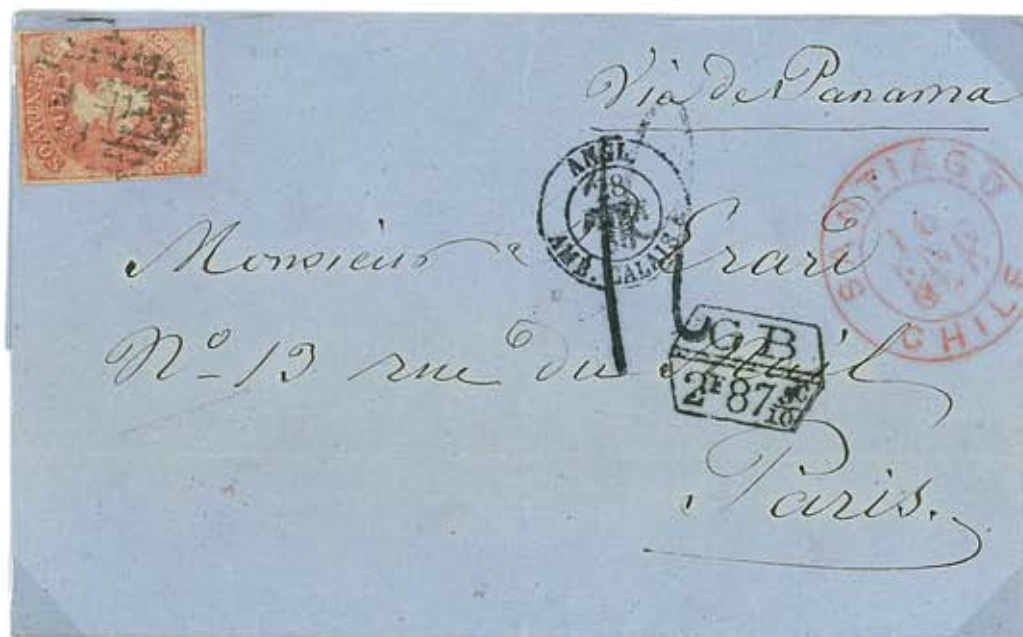 Via de Panama
ANGL.
28
AMB. CALAIS
SANTIAGO
CHILE
Monsieur Erard
Nº 13 rue du Mail
GB
2F 87 5C/10
Paris.
CENTAVOS